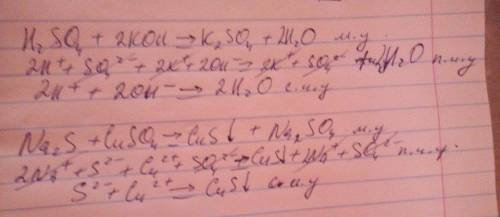 H₂SO₄ + 2KOH → K₂SO₄ + 2H₂O м.у.
2H⁺ + SO₄²⁻ + 2K⁺ + 2OH⁻ → 2K⁺ + SO₄²⁻ + 2H₂O п.м.у.
2H⁺ + 2OH⁻ → 2H₂O с.м.у
Na₂S + CuSO₄ → CuS↓ + Na₂SO₄ м.у.
2Na⁺ + S²⁻ + Cu²⁺ + SO₄²⁻ → CuS↓ + 2Na⁺ + SO₄²⁻ п.м.у.
S²⁻ + Cu²⁺ → CuS↓ с.м.у